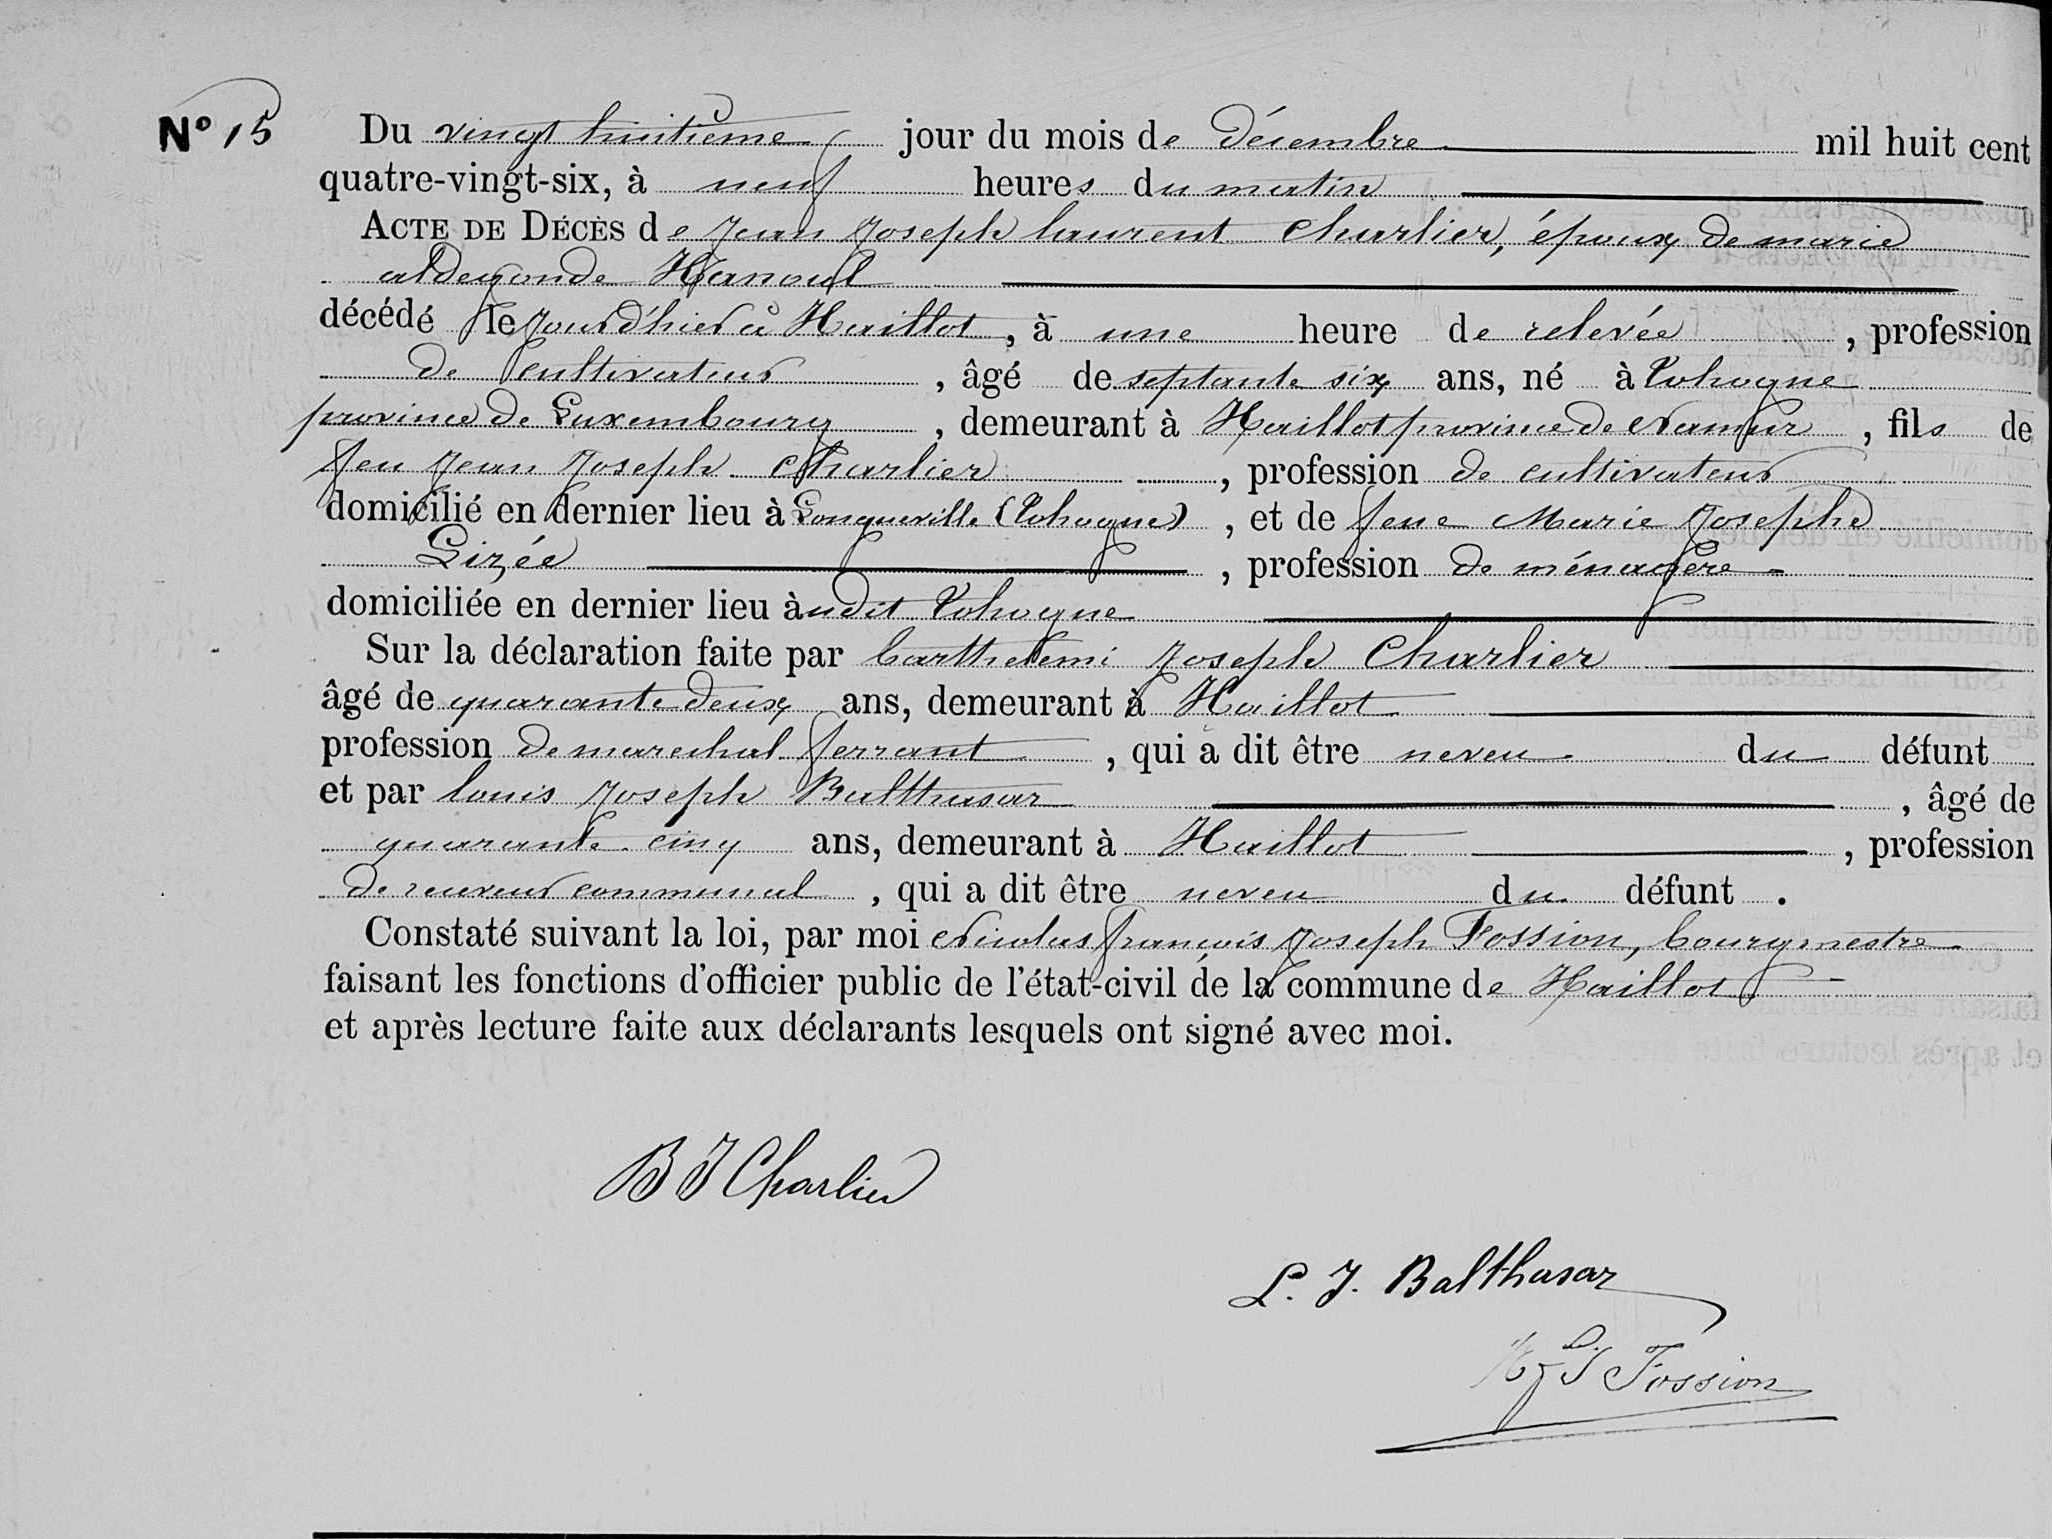 N° 15
Du vingt huitième jour du mois de décembre mil huit cent
quatre-vingt-six, à neuf heures du matin
ACTE DE DÉCÈS de Jean Joseph laurent Charlier, époux de marie
aldegonde Hanoul
décédé le jour d'hier à Haillot, à une heure de relevée, profession
de cultivateur, âgé de septante six ans, né à Tohogne
province de Luxembourg, demeurant à Haillot province de Namur, fils de
feu Jean Joseph Charlier, profession de cultivateur
domicilié en dernier lieu à Longueville (Tohogne), et de feue Marie Josephe
Lizée, profession de ménagère
domiciliée en dernier lieu àudit Tohogne
Sur la déclaration faite par barthelemi Joseph Charlier
âgé de quarante deux ans, demeurant à Haillot
profession de marechal ferrant, qui a dit être neveu du défunt
et par louis Joseph Balthasar, âgé de
quarante cinq ans, demeurant à Haillot, profession
de receveur communal, qui a dit être neveu du défunt.
Constaté suivant la loi, par moi Nicolas françois Joseph Fossion, bourgmestre
faisant les fonctions d'officier public de l'état-civil de la commune de Haillot
et après lecture faite aux déclarants lesquels ont signé avec moi.
B J Charlier
L. J. Balthasar
N f J Fossion